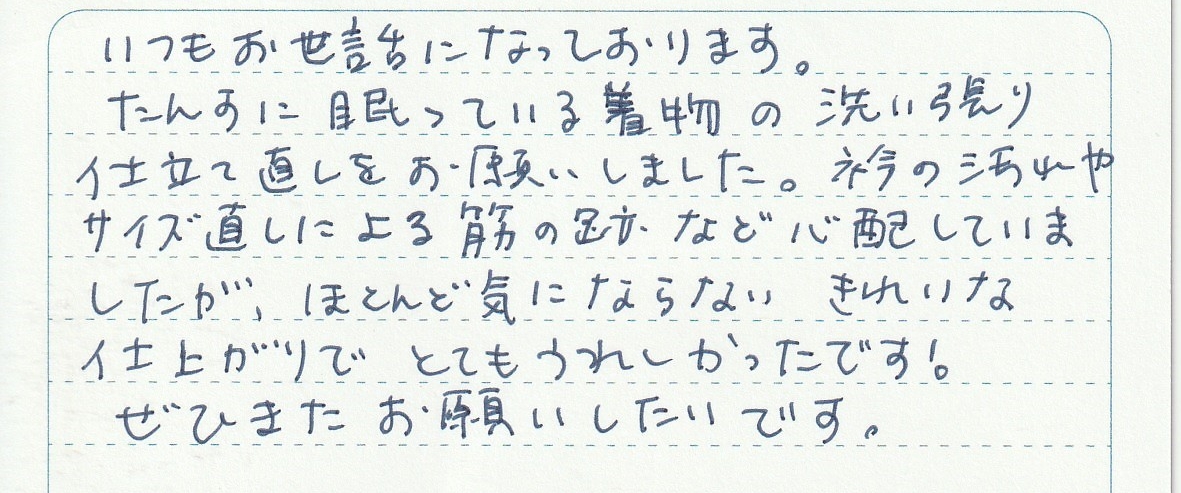 いつもお世話になっております。
たんすに眠っている着物の洗い張り
仕立て直しをお願いしました。衿の汚れや
サイズ直しによる筋の跡など心配していま
したが、ほとんど気にならない きれいな
仕上がりで とてもうれしかったです!
ぜひまた お願いしたいです。